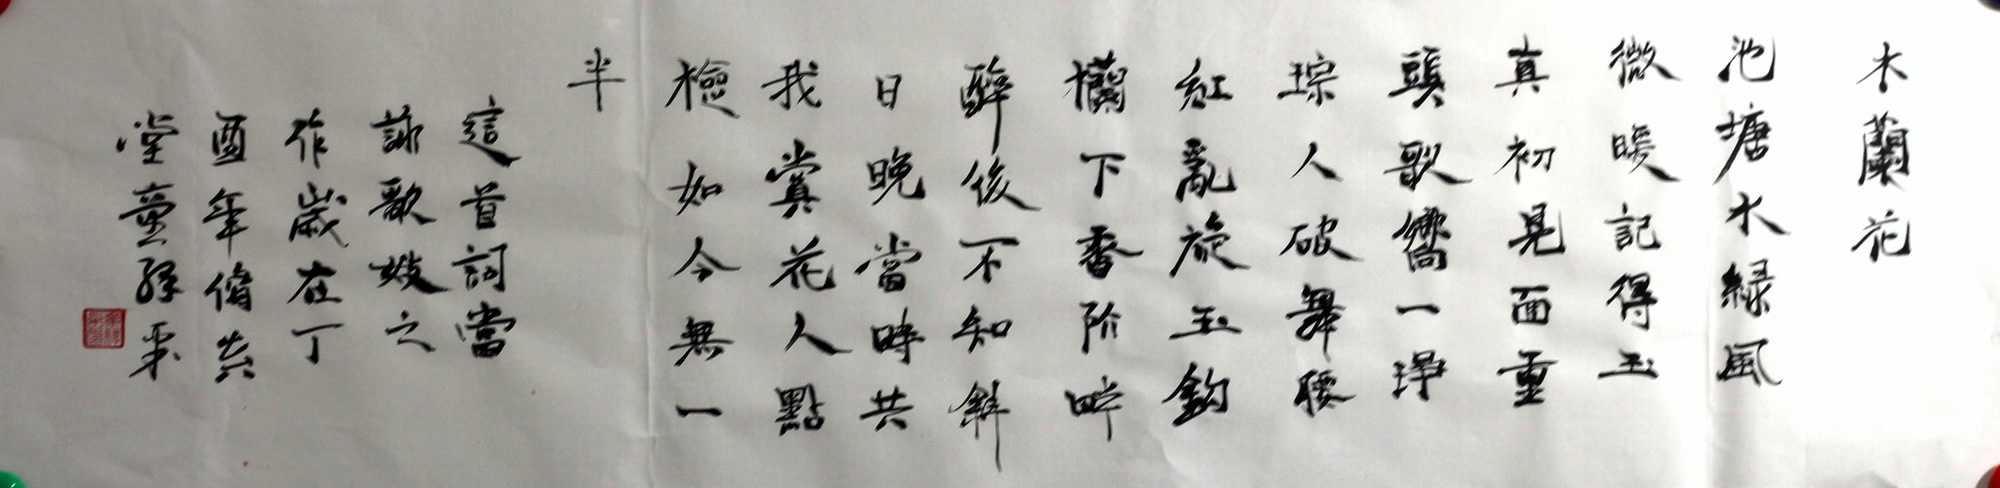 木蘭花
池塘水緑風
微暖記得玉
真初見面重
頭歌響一琤
琮人破舞腰
紅亂旋玉鈎
欄下香階畔
醉後不知斜
日晚當時共
我賞花人點
檢如今無一
半
這首詞當
詠歌妓之
作歲在丁
酉年脩
堂童